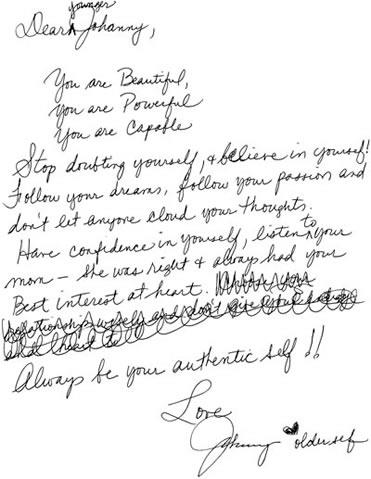 Dear younger Johanny,
You are Beautiful,
You are Powerful
You are Capable
Stop doubting yourself, & believe in yourself!
Follow your dreams, follow your passion and
don't let anyone cloud your thoughts.
Have confidence in yourself, listen to your
mom – she was right & always had your
Best interest at heart. Choose your
relationships wisely and don't give your
and heart to
Always be your authentic self !!
Love
Johanny older self